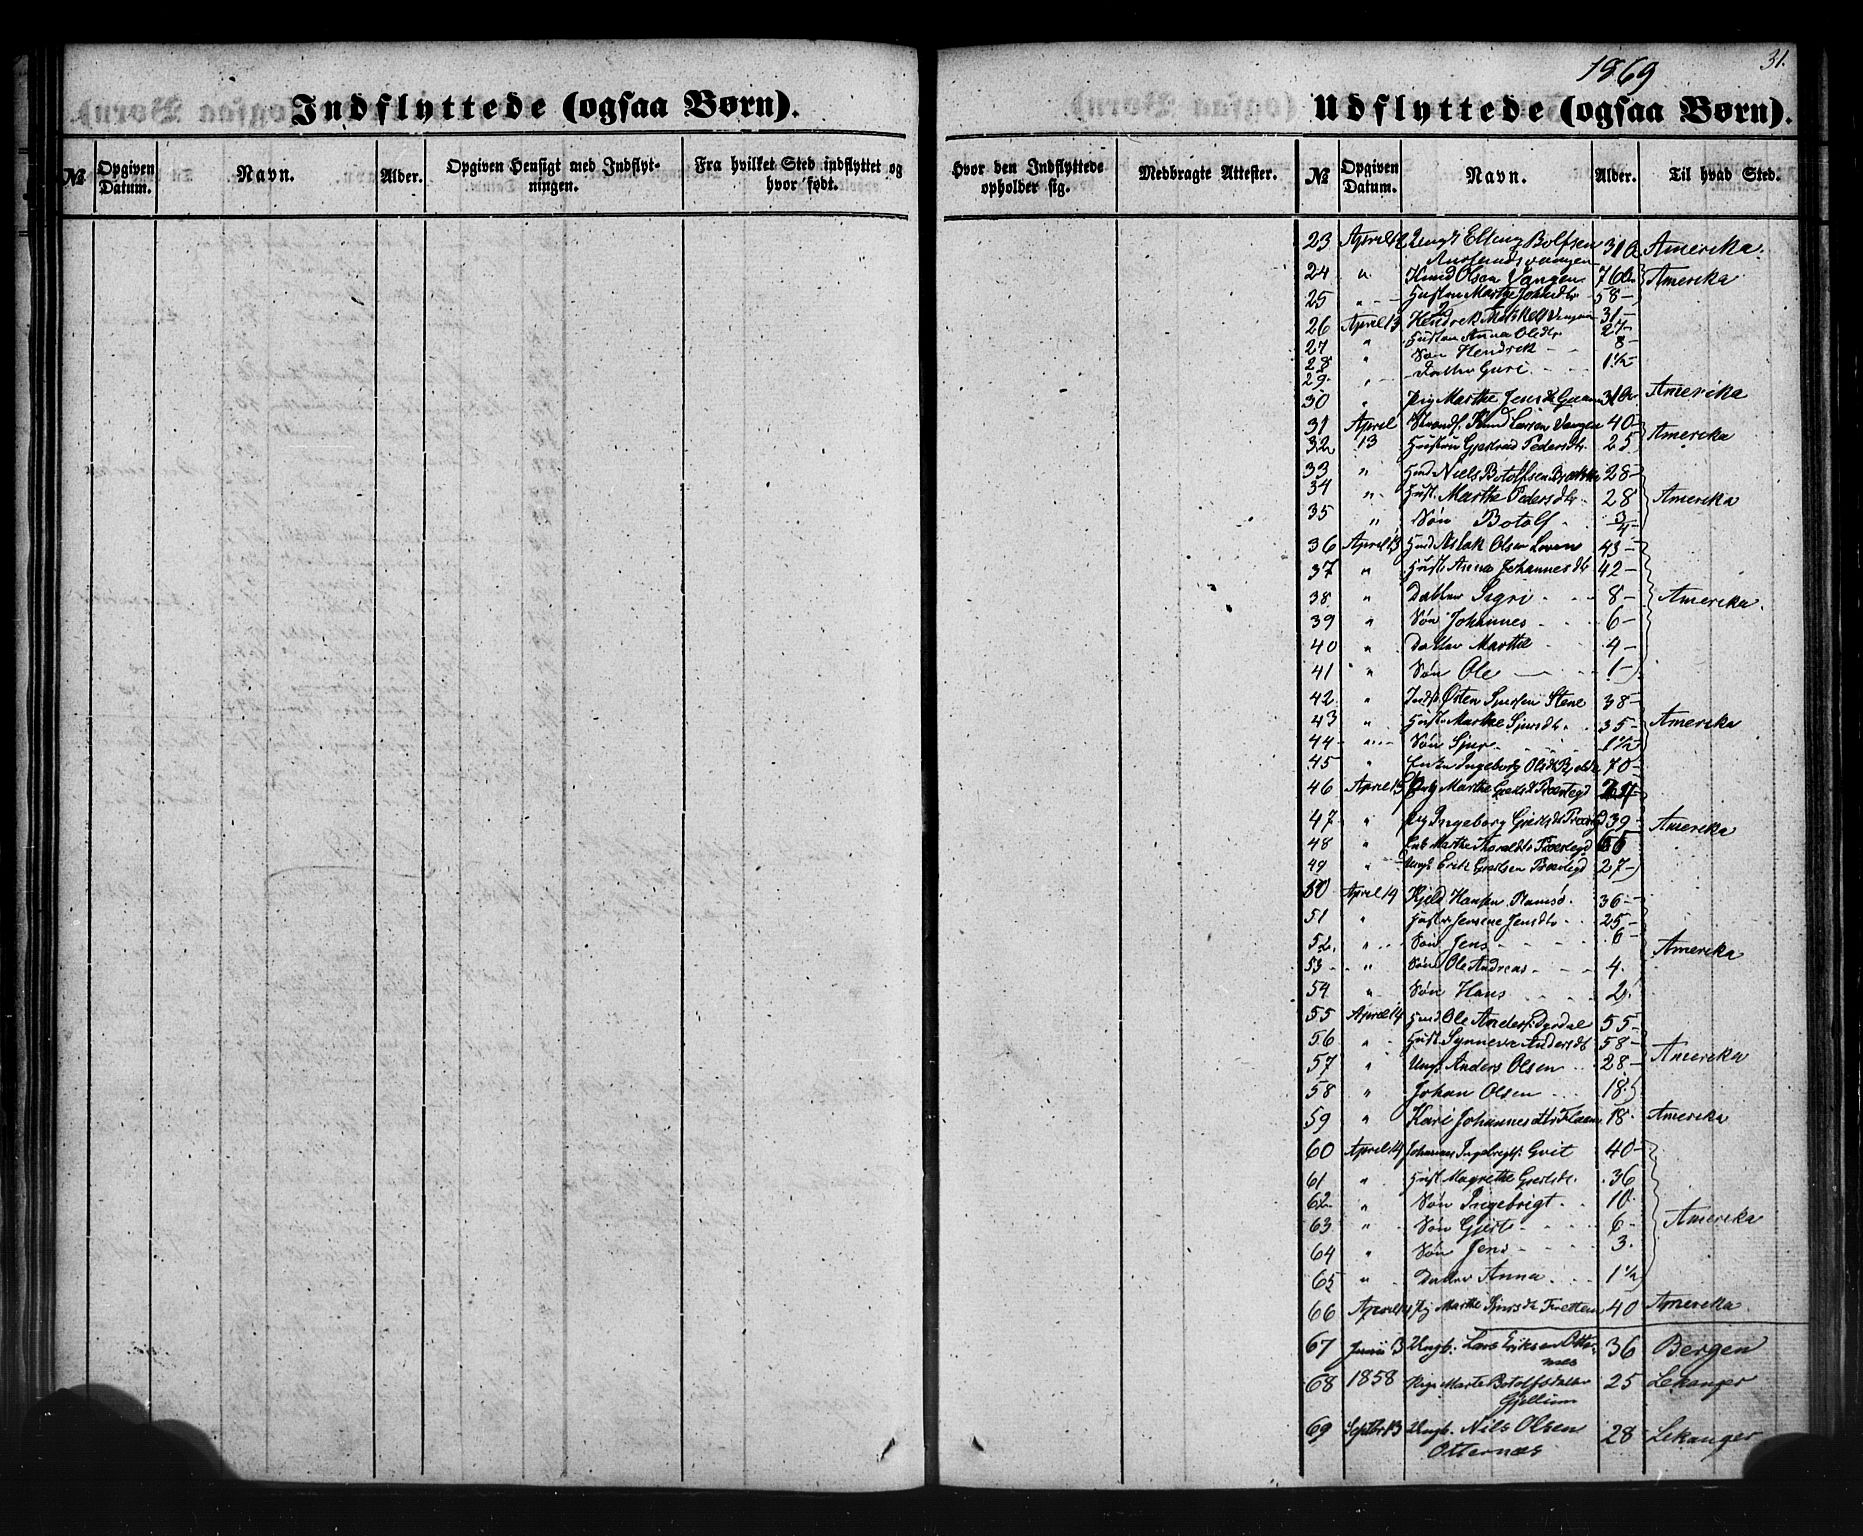 1869
31.
Indflyttede (ogsaa Børn).
Udflyttede (ogsaa Børn).
№ Opgiven Datum. Navn. Alder. Opgiven Hensigt med Indflytningen. Fra hvilket Sted indflyttet og hvor født. Hvor den Indflyttede opholder sig. Medbragte Attester. № Opgiven Datum. Navn. Alder. Til hvad Sted.
23 April 12 Elling Bolfsen 31 Amerika.
24 " Knud Olsen Vangen 76 Amerika
25 " Hustru 58 -
26 April 13 Vangen 31 -
27 " Hustru Anna Olsdtr 27 -
28 " Søn Hendrik 8 -
29 " Datter Guri 1½ -
30 " Pig Marthe Jensdtr 31 Amerika
31 April Knud Larsen Vangen 40
32 13 Hustru Pedersdtr 25 Amerika
33 " Niels Botolfsen 28 -
34 " Hust. Marthe Pedersdtr. 28 Amerika
35 " Søn Botolf ¾ -
36 April 13 Aslak Olsen 43 -
37 " Hust. Anna Johannesdtr 42 -
38 " Datter Sigri 8 - Amerika.
39 " Søn Johannes 6 -
40 " Datter Marthe 4 -
41 " Søn Ole 1 -
42 " Østen Sjursen Stene 38 -
43 " Hust. Marthe Sjursdtr. 35 - Amerika
44 " Søn Sjur 1½
45 " Enke Ingeborg Olsdtr 70 -
46 April 13 Marthe
47 " Pig Ingeborg 39 - Amerika
48 " Marthe
49 " Ungk. Erik 27 -
50 April 14 Kjeld Hansen Ramsø. 36 -
51 " Hustru Jensine Jensdtr 25 -
52. " Søn Jens 6 - Amerika
53 " Søn Ole Andreas 4.
54 " Søn Hans 2.
55 April 14 Ole Anders. 55 -
56 " Hust. Synneve Andersdtr 58 -
57 " Ungk. Anders Olsen 28 - Amerika
58 " Johan Olsen 18.
59 " Kari Johannesdtr Flaam 18. Amerika
60 April 14 Johannes Gvit 40 -
61 " Hust Magrethe 36
62 " Søn Ingebrigt 10.
63 " Søn Gjert 6 - Amerika
64 " Søn Jens 3.
65 " Datter Anna 1½
66 April 14 Pig Marthe Sjursdtr Fretten 40 Amerika
67 Juni 3 Ungk. Lars Eriksen Otternæs 36 Bergen
68 1858 Pige Marte Botolfsdatter Gjellum 25 Lekanger
69 Septbr 13 Ungk. Nils Olsen Otternæs 28 Lekanger